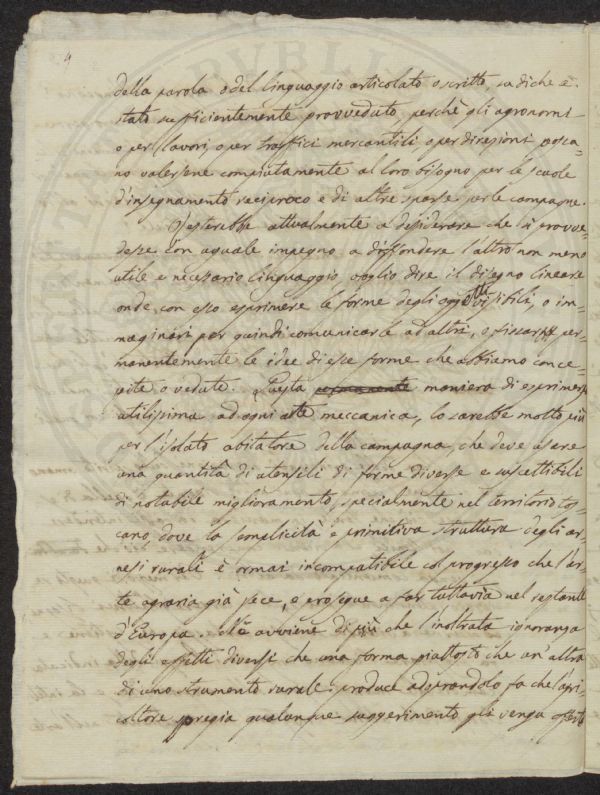 4
della parola o del linguaggio articolato o scritto, su di che è
stato sufficientemente provveduto, perchè gli agronomi
o per lavori, o per traffici mercantili, o per direzioni possa-
no valersene compiutamente al loro bisogno per le scuole
d'insegnamento reciproco e di altre sparse per le campagne.
Resterebbe attualmente a desiderare che si provve-
desse con uguale impegno a diffondere l'altro non meno
utile e necessario linguaggio, voglio dire il disegno lineare
onde con esso esprimere le forme degli oggetti visibili, o im-
maginari per quindi comunicarle ad altri, o fissar per-
manentemente le idee di esse forme che abbiamo conce-
pite o vedute. Questa maniera di esprimersi
utilissima ad ogni arte meccanica, lo sarebbe molto più
per l'isolato abitatore della campagna, che deve usare
una quantità di utensili di forme diverse e suscettibili
di notabile miglioramento, specialmente nel territorio tos-
cano, dove la semplicità e primitiva struttura degli ar-
nesi rurali è ormai incompatibile col progresso che l'ar-
te agraria già fece, e prosegue a far tuttavia nel restante
d'Europa. Ne avviene di più che l'inoltrata ignoranza
degli effetti diversi che una forma piuttosto che un'altra
di uno strumento rurale produce adoprandolo fa che l'agri-
coltore spregia qualunque suggerimento gli venga offerto